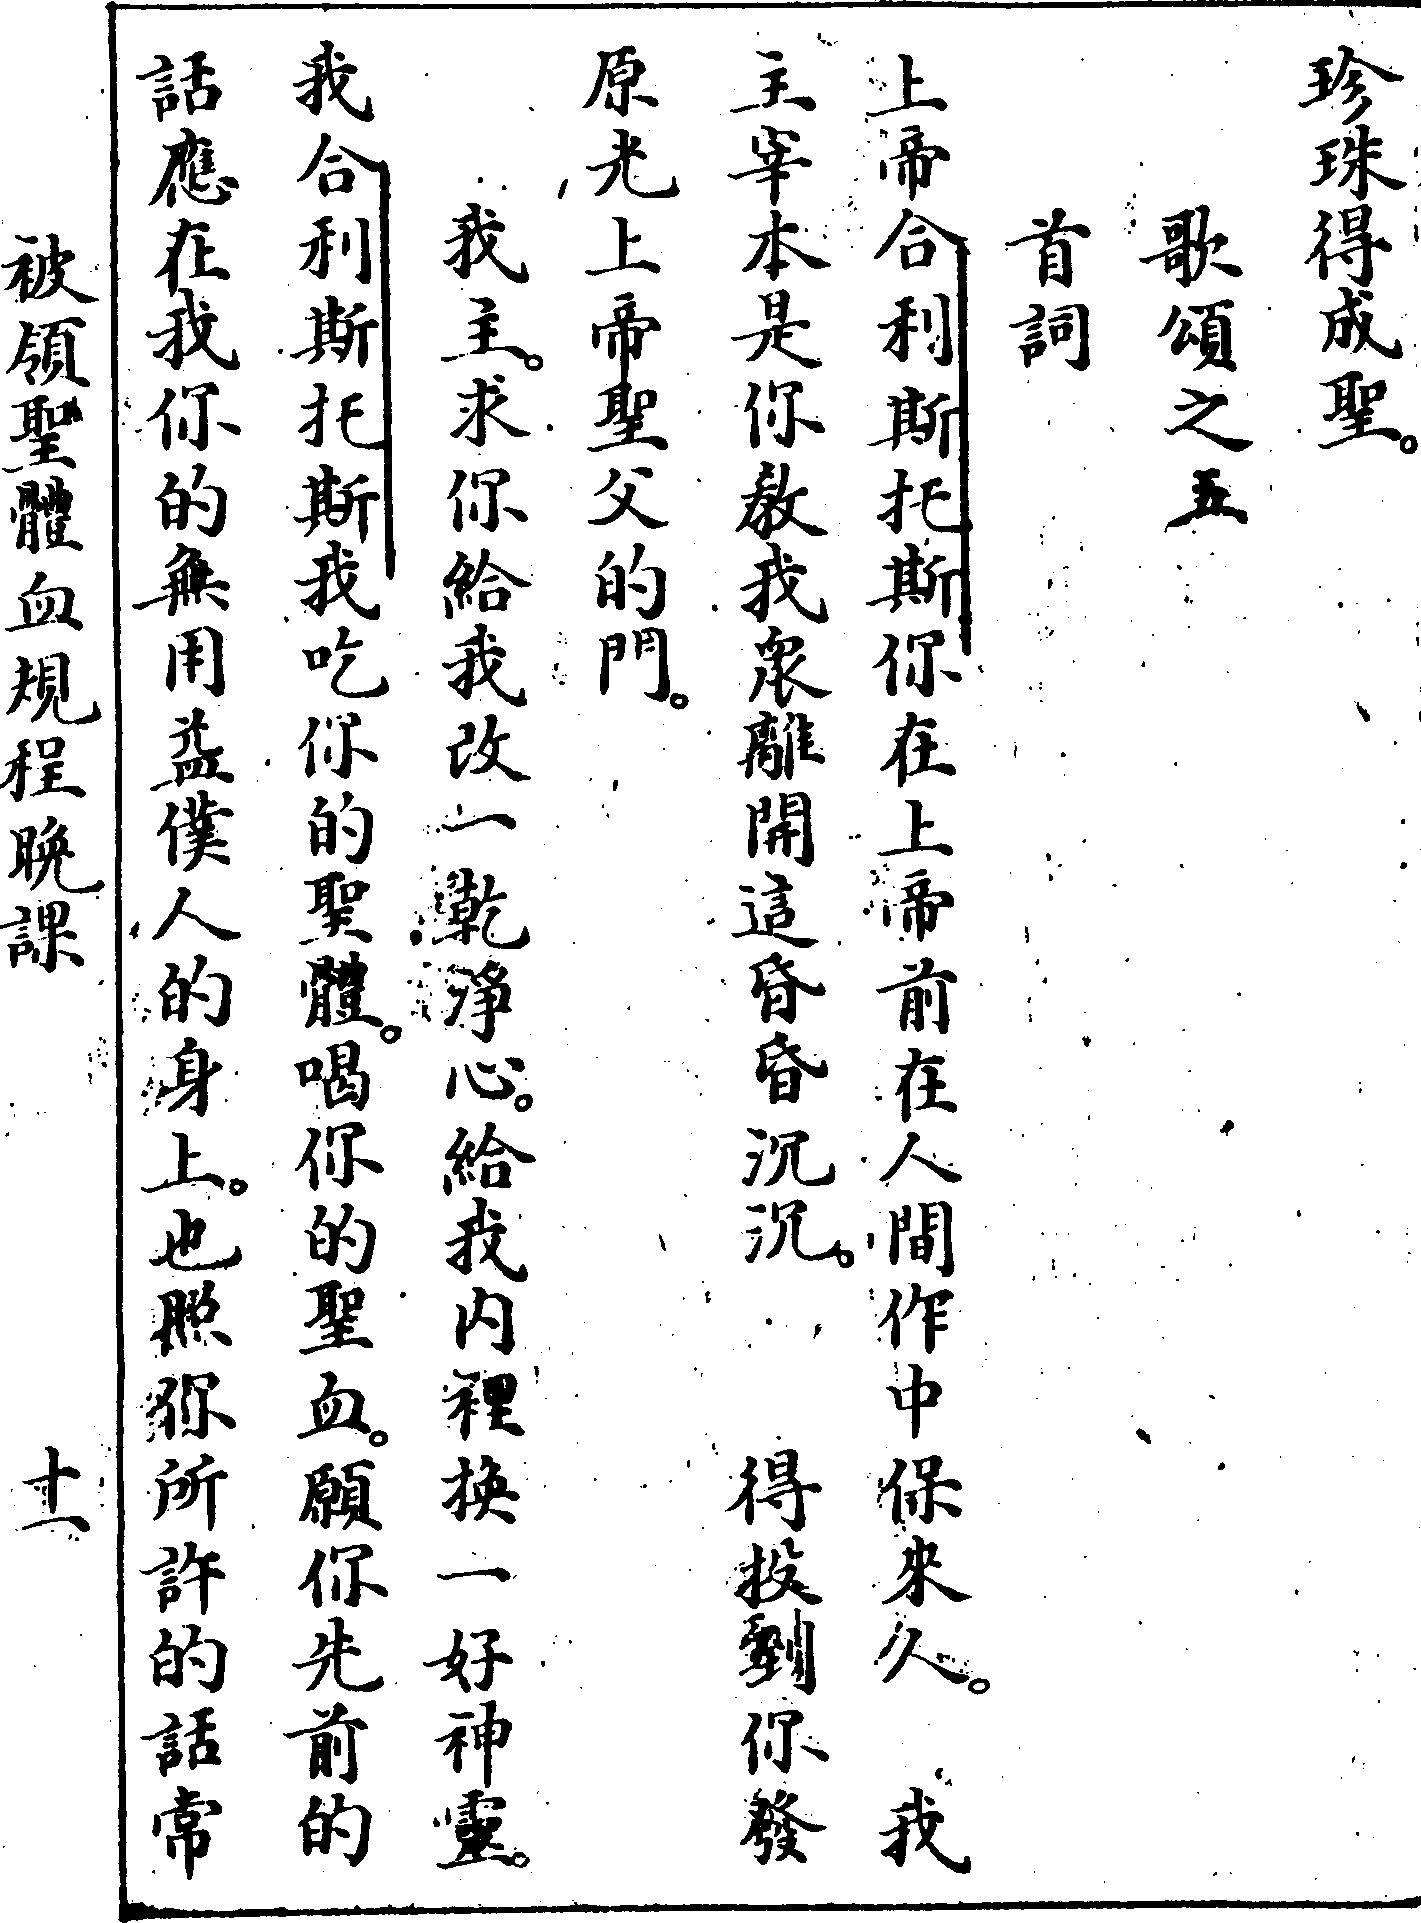 珍珠得成聖。
歌頌之五
首詞
上帝合利斯托斯你在上帝前在人間作中保來久。 我
主宰本是你救我衆離開這昏昏沉沉。 得投到你發
原光上帝聖父的門。
我主。求你給我改一乾淨心。給我内裡换一好神靈。
我合利斯托斯我吃你的聖體。喝你的聖血。願你先前的
話應在我你的無用益僕人的身上。也照你所許的話常
被領聖體血規程晚課 十一